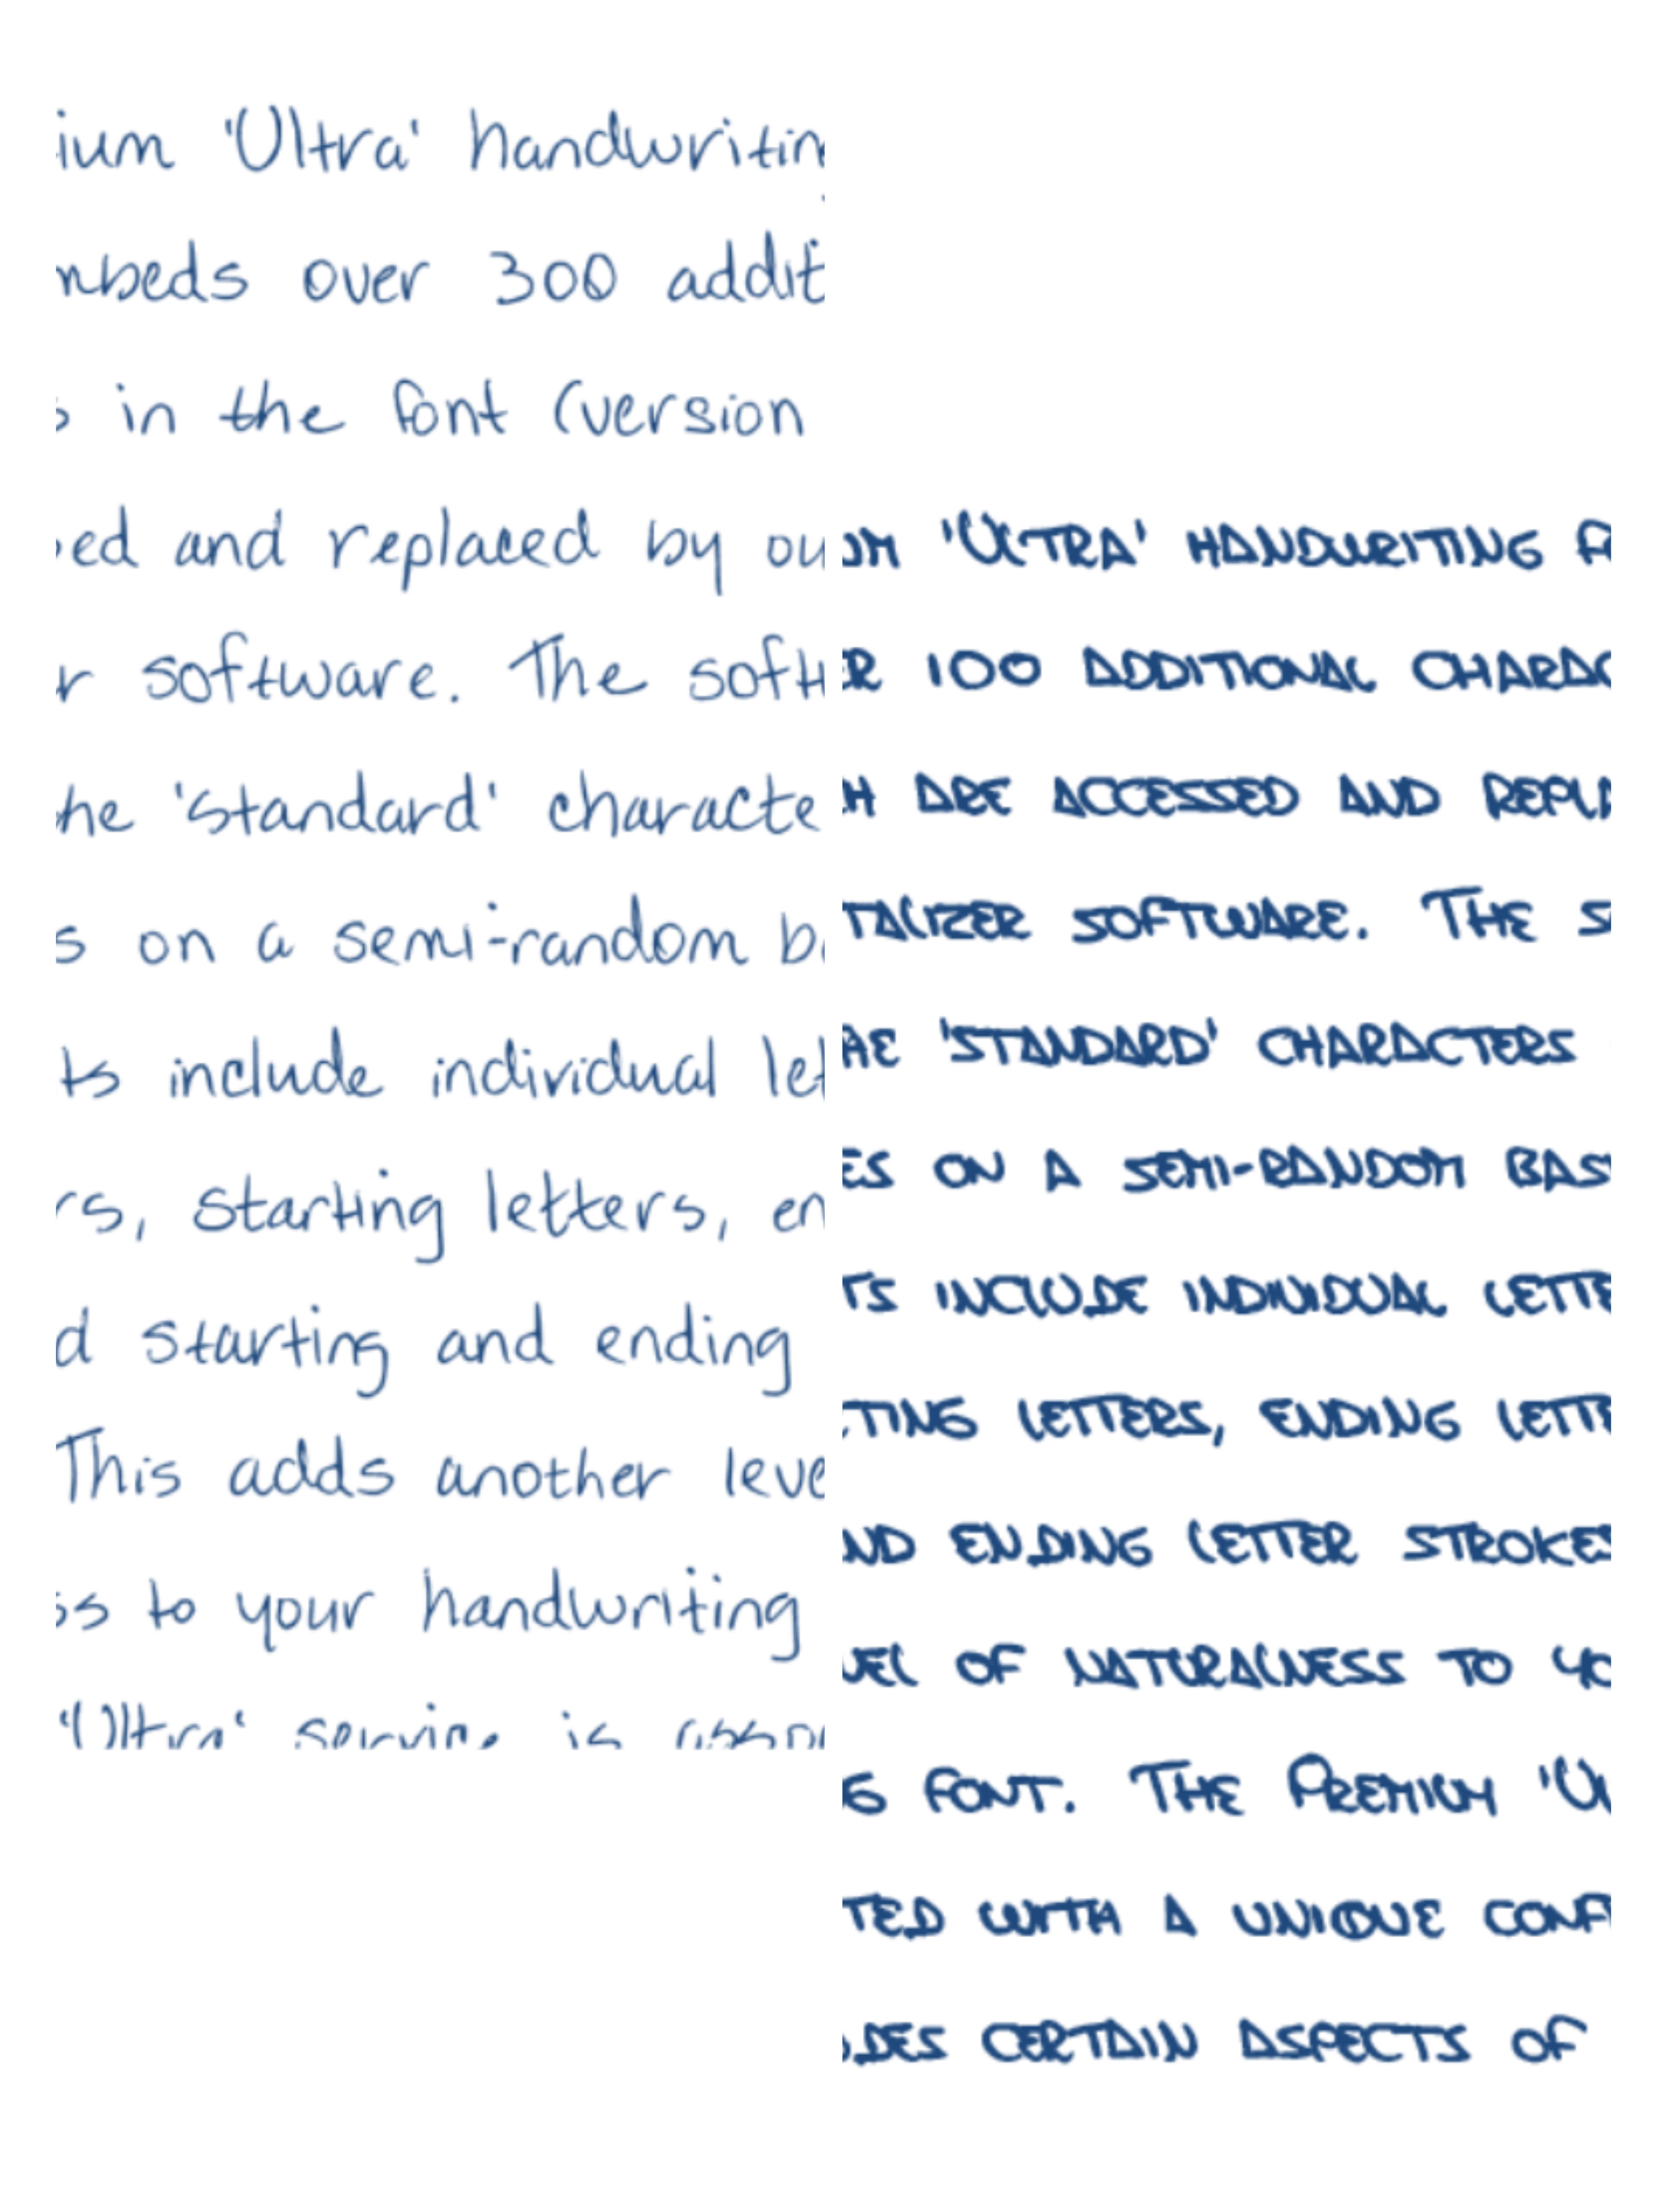 ium 'Ultra' handwritin
mbeds over 300 addit
s in the font (version
ed and replaced by ou
r software. The soft
he 'standard' characte
s on a semi-random b
ts include individual let
rs, starting letters, en
d starting and ending
This adds another leve
ss to your handwriting
'Ultra' service is
UM 'ULTRA' HANDWRITING F
ER 100 ADDITIONAL CHARAC
H ARE ACCESSED AND REPLA
TALIZER SOFTWARE. THE S
HE 'STANDARD' CHARACTERS
ES ON A SEMI-RANDOM BAS
TS INCLUDE INDIVIDUAL LETTE
TING LETTERS, ENDING LETTE
ND ENDING LETTER STROKES
VEL OF NATURALNESS TO YO
G FONT. THE PREMIUM 'UL
TED WITH A UNIQUE CONF
DES CERTAIN ASPECTS OF